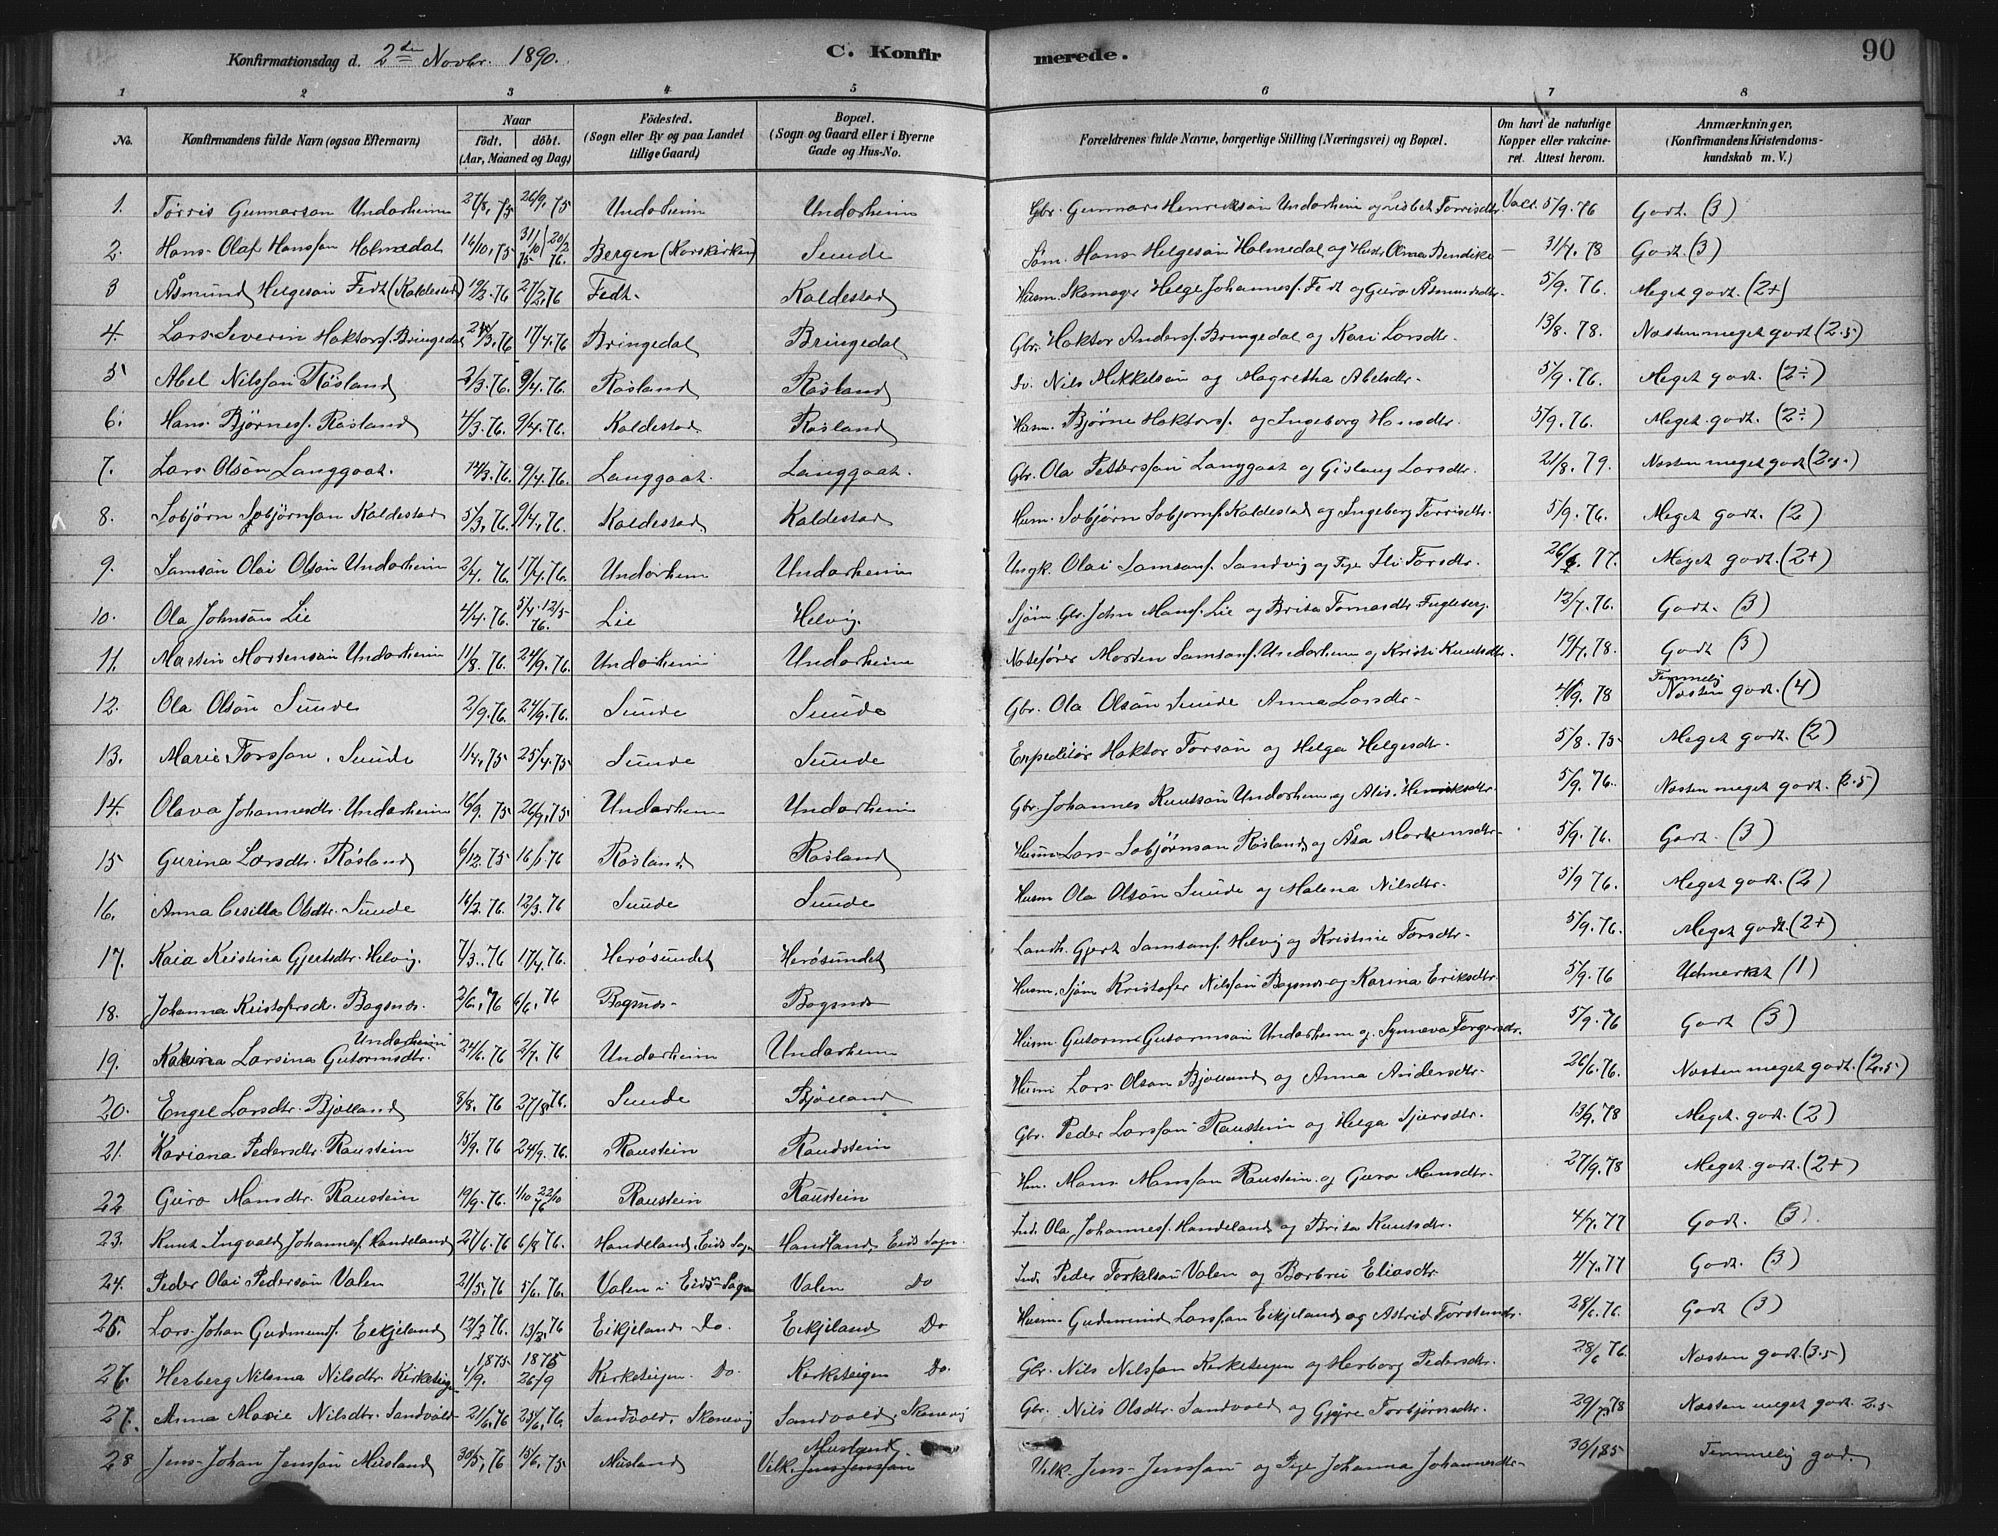 Konfirmationsdag d. 2den Novbr. 1890.
C. Konfirmerede.
90
1 2 3 4 5 6 7 8
No. Konfirmandens fulde Navn (ogsaa Efternavn) Naar født. døbt. (Aar, Maaned og Dag) Fødested. (Sogn eller By og paa Landet tillige Gaard) Bopæl. (Sogn og Gaard eller i Byerne Gade og Hus-No. Forældrenes fulde Navne, borgerlige Stilling (Næringsvei) og Bopæl. Om havt de naturlige Kopper eller vakcineret. Attest herom. Anmærkninger. (Konfirmandens Kristendomskundskab m. V.)
1. Tørris Gunnarson Undarheim 27/8. 75 26/9. 75 Undarheim Undarheim Gbr. Gunnar Henriksøn Undarheim og Lisbet Torrisdtr. Vacc. 5/9. 76 Godt. (3)
2. Hans Olaf Hansson Holmedal 16/10. 75 31/10 75 20/2 76. Bergen (Korskirken) Sunde Søm. Hans Helgesøn Holmedal og Hustr Olina Bendiks 31/7. 78 Godt. (3)
3 Åsmund Helgesøn Fedt (Kaldestad) 19/2. 76 27/2. 76 Fedt. Kaldestad Husm. Skomager Helge Johannesf. Fedt og Guro Åsmundsdtr. 5/9. 76. Meget godt. (2+)
4. Lars Severin Haktorf. Bringedal 24/3. 76 17/4. 76 Bringedal Bringedal Gbr. Haktor Andersf. Bringedal og Kari Larsdtr. 13/8. 78. Næsten meget godt (2.5)
5 Abel Nilsson Røsland 2/3. 76. 9/4. 76. Røsland Røsland Do. Nils Mikkelsøn og Magretha Abelsdtr. 5/9. 76. Meget godt. (2÷)
6. Hans Bjørnesf. Røsland 4/3. 76. 9/4. 76. Kaldestad Røsland Husm. Bjørne Haktorsf. og Ingeborg Hansdtr. 5/9. 76. Meget godt. (2÷)
7. Lars Olsøn Langgaat. 14/3. 76 9/4. 76. Langgaat. Langgaat. Gbr. Ola Pettersson Langgaat og Gislaug Larsdtr. 21/8. 79. Næsten meget godt (2.5)
8. Sobjørn Sobjørnsøn Kaldestad 5/3. 76. 9/4. 76. Kaldestad Kaldestad Husm. Sobjørn Sobjørnsf. Kaldestad og Ingeborg Torrisdtr. 5/9. 76. Meget godt. (2)
9. Samsøn Olai Olsøn Undarheim 2/4. 76. 17/4. 76. Undarheim Undarheim Ungk. Olai Samsonf. Sandvig og Pige Ili Torsdtr. 26/6. 77. Meget godt. (2+)
10. Ola Johnsøn Lie 4/4. 76 5/4. 12/5 76. Lie Helvig. Sjøm. Gbr. John Monsf. Lie og Brita Tomasdtr. Fugleberg. 12/7. 76. Godt. (3)
11. Martin Mortensøn Undarheim 11/8. 76. 24/9. 76. Undarheim Undarheim Notefører Morten Samsonf. Undarheim og Kristi Knutsdtr. 19/7. 78. Godt (3)
12. Ola Olsøn Sunde 2/9. 76. 24/9. 76. Sunde Sunde Gbr. Ola Olsøn Sunde Anna Larsdtr. 4/9. 78 Temmelig Næsten godt. (4)
13. Marie Torsson. Sunde 1/4. 75 25/4. 75 Sunde Sunde Expeditør Haktor Torsøn og Helga Helgesdtr. 5/8. 75 Meget godt. (2)
14. Olava Johannesdtr. Undarheim 16/9. 75 26/9. 75 Undarheim Undarheim Gbr. Johannes Knutsøn Undarheim og Alis Henriksdtr. 5/9. 76. Næsten meget godt. (2.5)
15 Gurina Larsdtr. Røsland 6/12. 75 16/1. 76 Røsland Røsland Husm. Lars Sobjørnson Røsland og Åsa Mortensdtr. 5/9. 76. Godt. (3)
16. Anna Cesilla Olsdtr. Sunde 16/2. 76. 12/3. 76 Sunde Sunde Husm Ola Olsøn Sunde og Malena Nilsdtr. 5/9 76. Meget godt. (2)
17. Kaia Kristina Gjertsdtr. Helvig. 7/3. 76 17/4. 76. Herøsundet Herøsundet Landh. Gjert Samsonf. Helvig og Kristine Torsdtr. 5/9. 76. Meget godt. (2+)
18. Johanna Kristofersdr. Bogsnes. 2/6. 76 6/6. 76 Bogsnes Bogsnes Husm. Sjøm Kristofer Nilsson Bogsnes og Karina Eriksdtr. 5/9. 76 Udmerket (1)
19. Larsina Gutormsdtr. Undarheim 24/6. 76 2/7. 76 Undarheim Undarheim Husm. Gutorm Gutormsøn Undarheim og Synneva Torgersdtr. 5/9. 76 Godt (3)
20. Engel Larsdtr. Bjølland 8/8. 76 27/8. 76. Sunde Bjølland Husm Lars Olson Bjølland og Anna Andersdtr. 26/6. 76. Næsten meget godt. (2.5)
21. Kariana Pedersdtr. Raustein 15/9. 76 24/9. 76. Raustein Raudstein Gbr. Peder Larsson Raustein og Helga Sjursdtr. 13/9. 78 Meget godt. (2)
22 Guro Monsdtr. Raustein 19/9. 76. 1/10 22/10 76 Raustein Raustein Hm. Mons Monsson Raustein og Guro Monsdtr. 27/9. 78 Meget godt. (2+)
23. Knut Ingvald Johannesf. Handeland 27/6. 76 6/8. 76. Handeland, Eids Sogn Handland, Eids Sogn. Ind. Ola Johannesf. Handeland og Brita Knutsdtr. 4/7. 77 Godt. (3).
24. Peder Olai Pedersøn Valen 21/5. 76 5/6. 76. Valen i Eids-Sogn Valen Do Ind. Peder Torkelsøn Valen og Barbru Eliasdtr. 4/7. 77 Godt. (3)
25. Lars Johan Gudmunsf. Eikjeland 12/3 76. 13/3. 76 Eikjeland Do. Eikjeland Do Husm. Gudmund Larsson Eikjeland og Astrid Torstensdtr. 28/6. 76. Godt (3)
26. Herberg Nilsina Nilsdtr. Kirketeigen 1875 4/9. 1875 26/9 Kirketeigen. Do. Kirketeigen Do. Gbr. Nils Nilsson Kirketeigen og Herborg Pedersdtr. 28/6 76. Næsten godt. (3.5)
27. Anna Marie Nilsdtr. Sandvold 21/6. 76 25/6. 76. Sandvold, Skonevig Sandvold, Skonevig Gbr. Nils Olsdtr. Sandvold og Gjøre Torbjørnsdtr. 29/7. 78 Næsten meget godt. 2.5
28 Jens Johan Jensson Musland 30/5. 76 15/6. 75 Musland Musland Vilk. Jens Jensson Vilk. Jens Jensson og Pige Johanna Johannesdtr. 30/1. 85 Temmelig god.